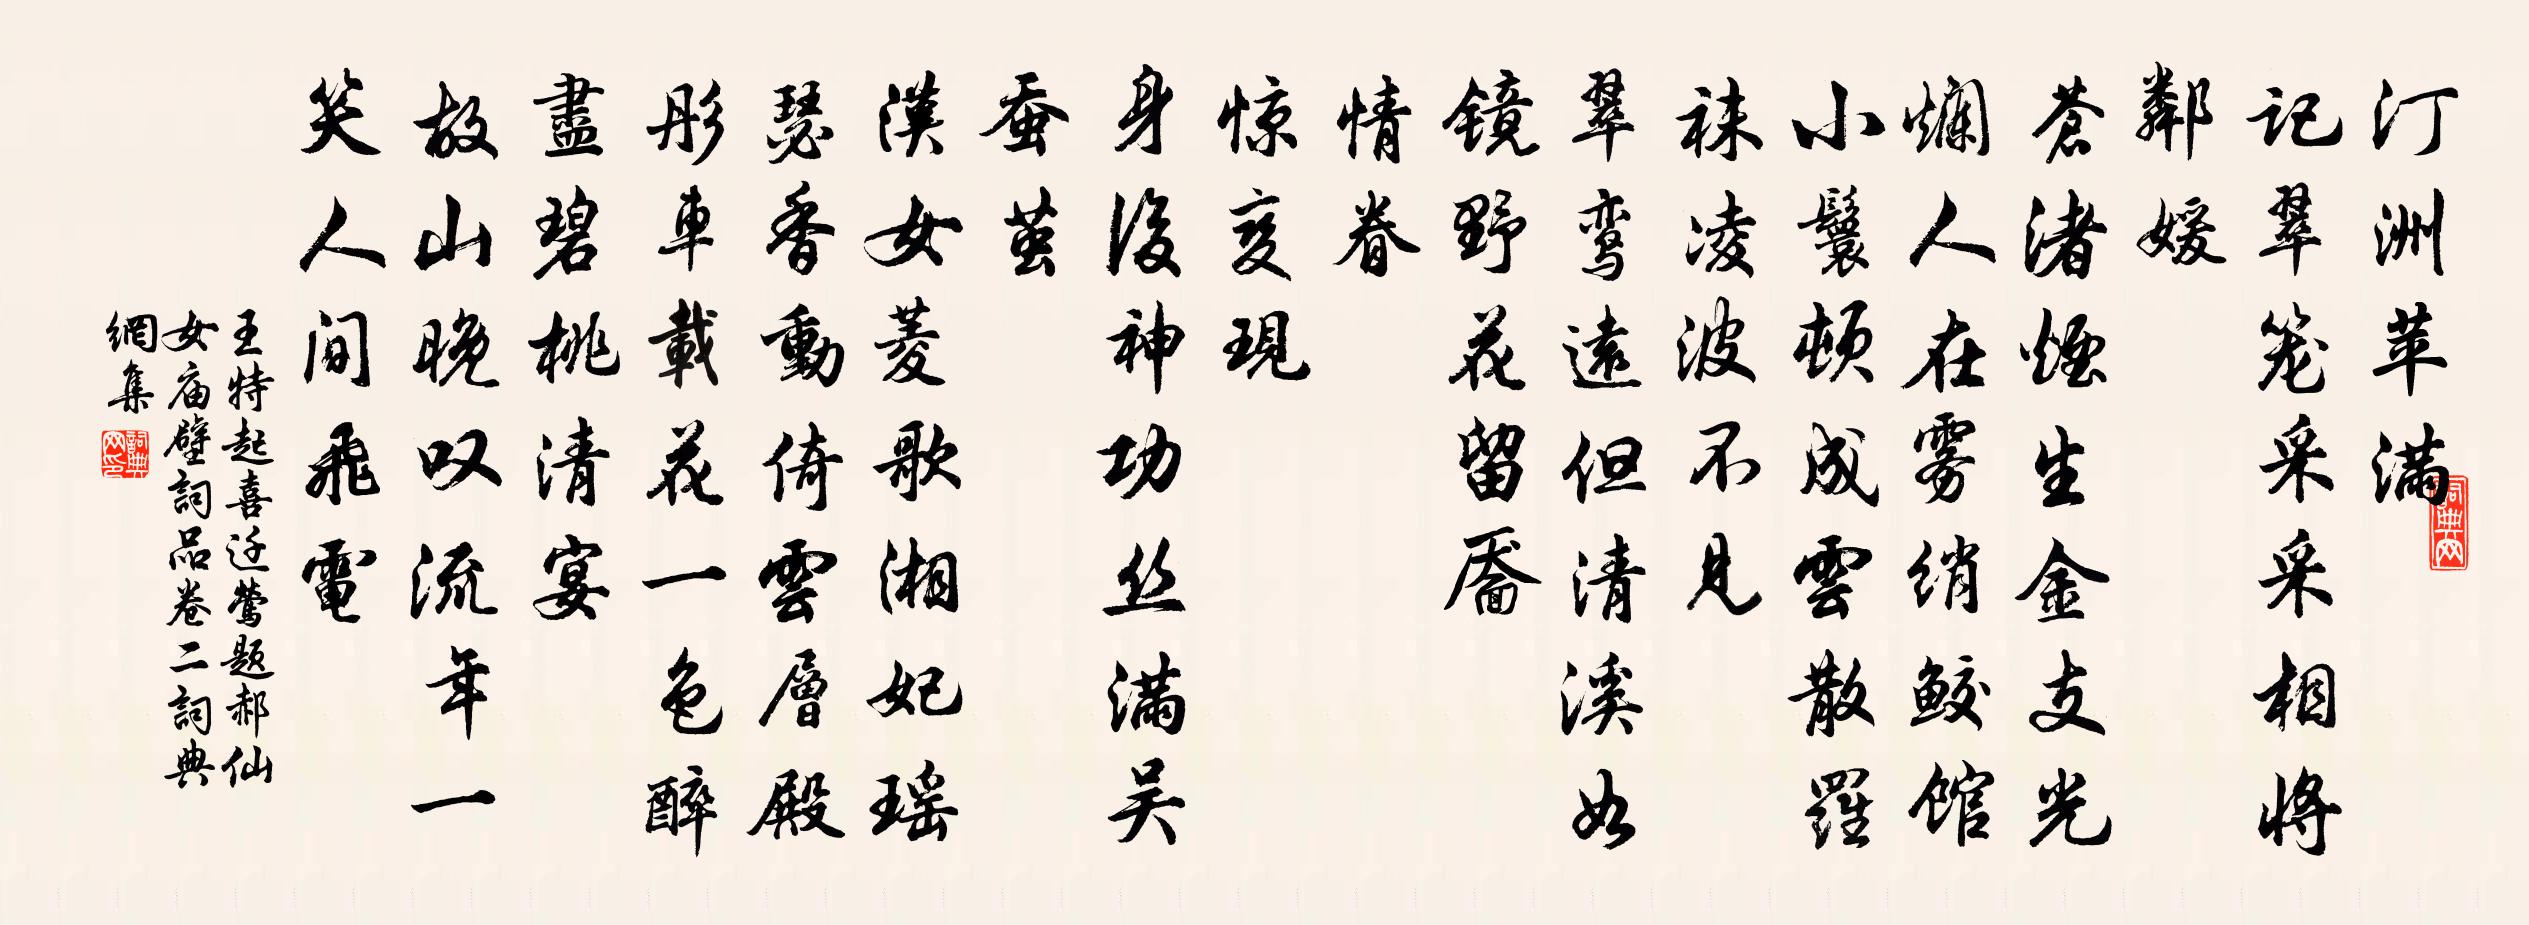 汀洲苹满
记翠笼采采相将
鄰媛
苍渚烟生金支光
爛人在雾绡鲛馆
小鬟顿成雲散羅
袜凌波不见
翠鸾遠但清溪如
镜野花留靥
情眷
惊变現
身後神功丝满吴
蚕茧
漢女菱歌湘妃瑶
瑟香動倚雲層殿
彤車載花一色醉
盡碧桃清宴
故山晚叹流年一
笑人间飛電
王特起喜迁莺题郝仙
女庙壁詞品卷二詞典
網集
詞典网
詞典网印